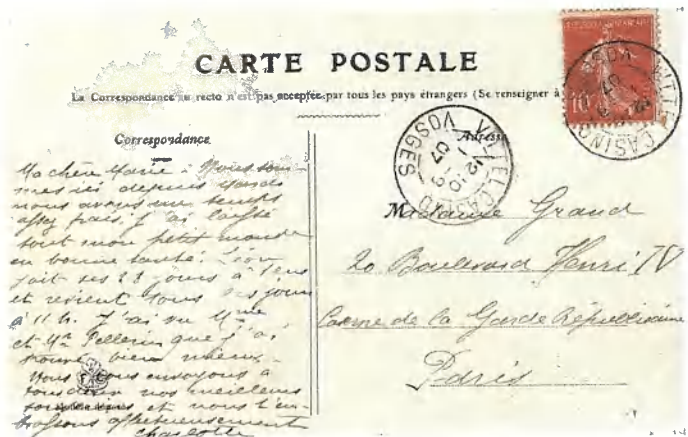 CARTE POSTALE
La Correspondance au recto n'est pas acceptée par tous les pays étrangers (Se renseigner à
Correspondance
Ma chère Marie : Nous som-
mes ici depuis Mardi
nous avons un temps
assez frais. J'ai laissé
tout mon petit monde
en bonne santé. Léon
fait ses 28 jours à
et revient tous les jours
à 11 h. J'ai vu Mme
et Mr Pellerin que j'ai
trouvé bien mieux.
Nous vous envoyons à
tous deux nos meilleurs
souvenirs et nous t'em-
brassons affectueusement
Charlotte
Adresse
VITTEL CASINO
VOSGES
07
VITTEL CASINO
VOSGES
07
10
Madame Grand
20 Boulevard Henri IV
Caserne de la Garde Républicaine
Paris